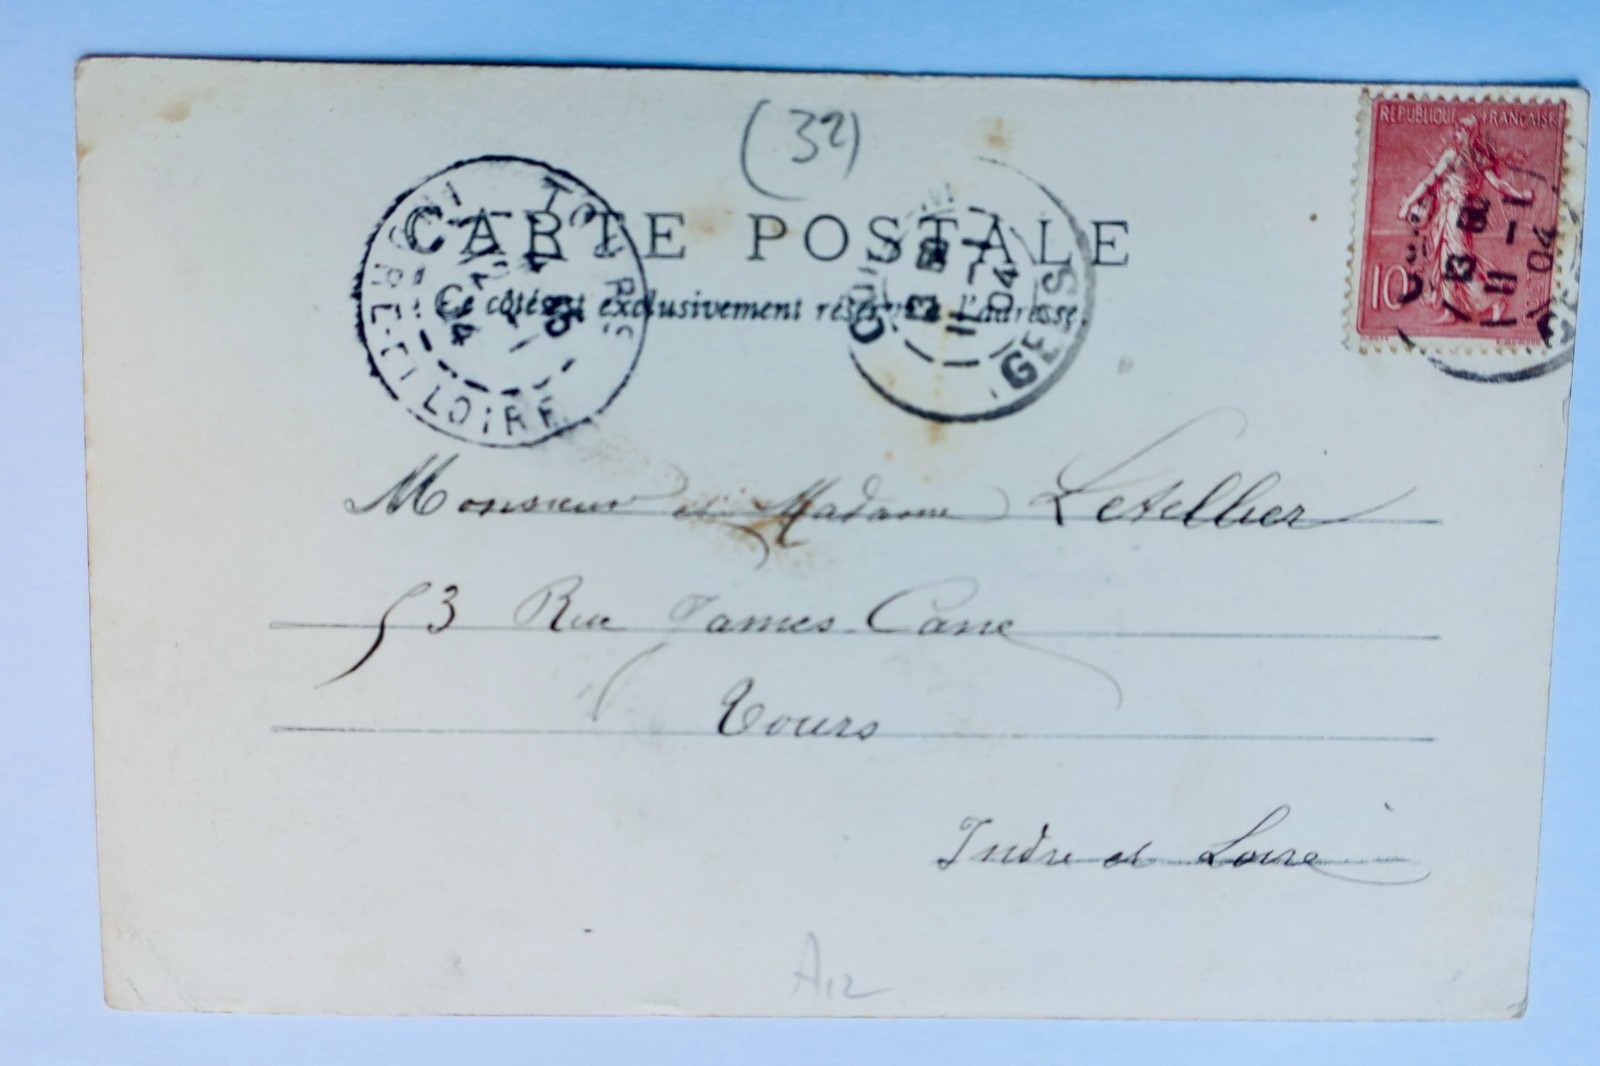 (32)
REPUBLIQUE FRANÇAISE
10
CARTE POSTALE
Ce côté est exclusivement réservé à l'adresse
TOURS
LOIRE
04
GERS
13
11 - 1
04
Monsieur et Madame Letellier
53 Rue James Cane
Tours
Indre et Loire
A12